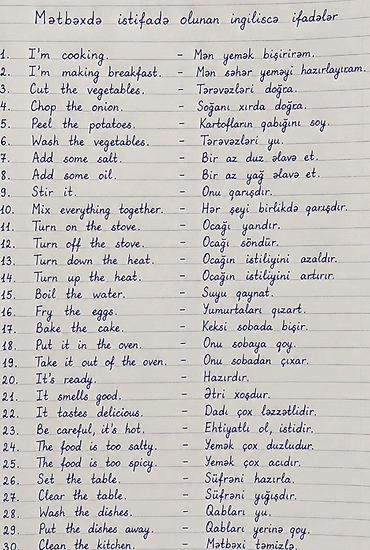 Mətbəxdə istifadə olunan ingiliscə ifadələr
1. I'm cooking. - Mən yemək bişirirəm.
2. I'm making breakfast. - Mən səhər yeməyi hazırlayıram.
3. Cut the vegetables. - Tərəvəzləri doğra.
4. Chop the onion. - Soğanı xırda doğra.
5. Peel the potatoes. - Kartofların qabığını soy.
6. Wash the vegetables. - Tərəvəzləri yu.
7. Add some salt. - Bir az duz əlavə et.
8. Add some oil. - Bir az yağ əlavə et.
9. Stir it. - Onu qarışdır.
10. Mix everything together. - Hər şeyi birlikdə qarışdır.
11. Turn on the stove. - Ocağı yandır.
12. Turn off the stove. - Ocağı söndür.
13. Turn down the heat. - Ocağın istiliyini azaldır.
14. Turn up the heat. - Ocağın istiliyini artırır.
15. Boil the water. - Suyu qaynat.
16. Fry the eggs. - Yumurtaları qızart.
17. Bake the cake. - Keksi sobada bişir.
18. Put it in the oven. - Onu sobaya qoy.
19. Take it out of the oven. - Onu sobadan çıxar.
20. It's ready. - Hazırdır.
21. It smells good. - Ətri xoşdur.
22. It tastes delicious. - Dadı çox ləzzətlidir.
23. Be careful, it's hot. - Ehtiyatlı ol, istidir.
24. The food is too salty. - Yemək çox duzludur.
25. The food is too spicy. - Yemək çox acıdır.
26. Set the table. - Süfrəni hazırla.
27. Clear the table. - Süfrəni yığışdır.
28. Wash the dishes. - Qabları yu.
29. Put the dishes away. - Qabları yerinə qoy.
30. Clean the kitchen. - Mətbəxi təmizlə.